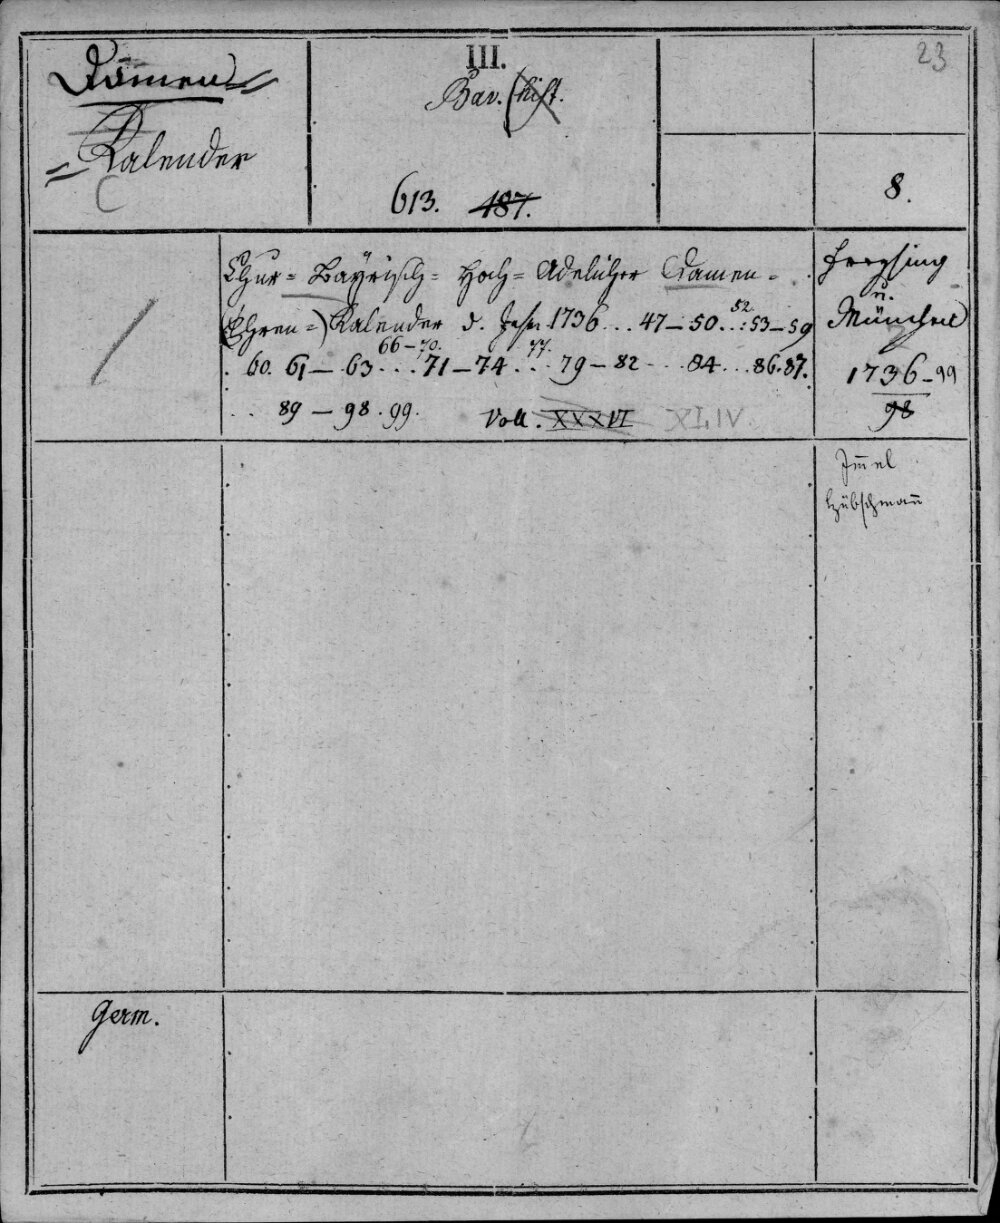 23
III.
Damen=
Bav. (hist.
=Kalender
C
613. 487.
8.
Chur=Bayrisch=Hoch=Adelicher Damen=
(Ehren=) Kalender d. Jahr 1736...47-50...52.:53-59
.60. 61-63...66-70.71-74...77. 79-82...84...86.87.
..89-98.99. Voll. XXXVI XLIV.
Freysing
u.
München
1736-99
98
Im̅el
Hübschman̅
Germ.